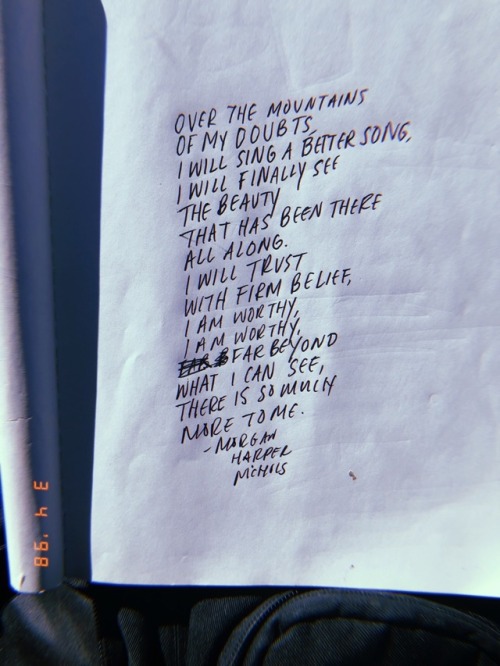 OVER THE MOUNTAINS
OF MY DOUBTS,
I WILL SING A BETTER SONG,
I WILL FINALLY SEE
THE BEAUTY
THAT HAS BEEN THERE
ALL ALONG.
I WILL TRUST
WITH FIRM BELIEF,
I AM WORTHY,
I AM WORTHY,
FAR BEYOND
WHAT I CAN SEE,
THERE IS SO MUCH
MORE TO ME.
-MORGAN
HARPER
NICHOLS
3 4 '98